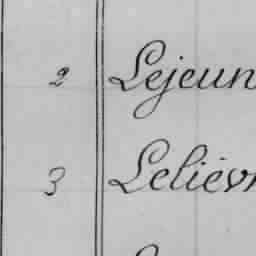 2 Lejeun
3 Lelièv